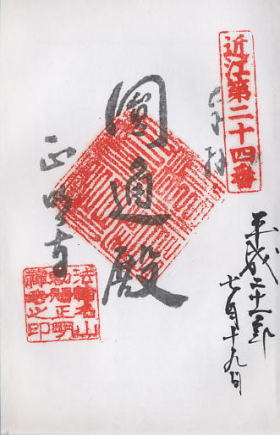 近江第二十四番
奉拝
平成二十一年
七月十九日
圓通殿
正明寺